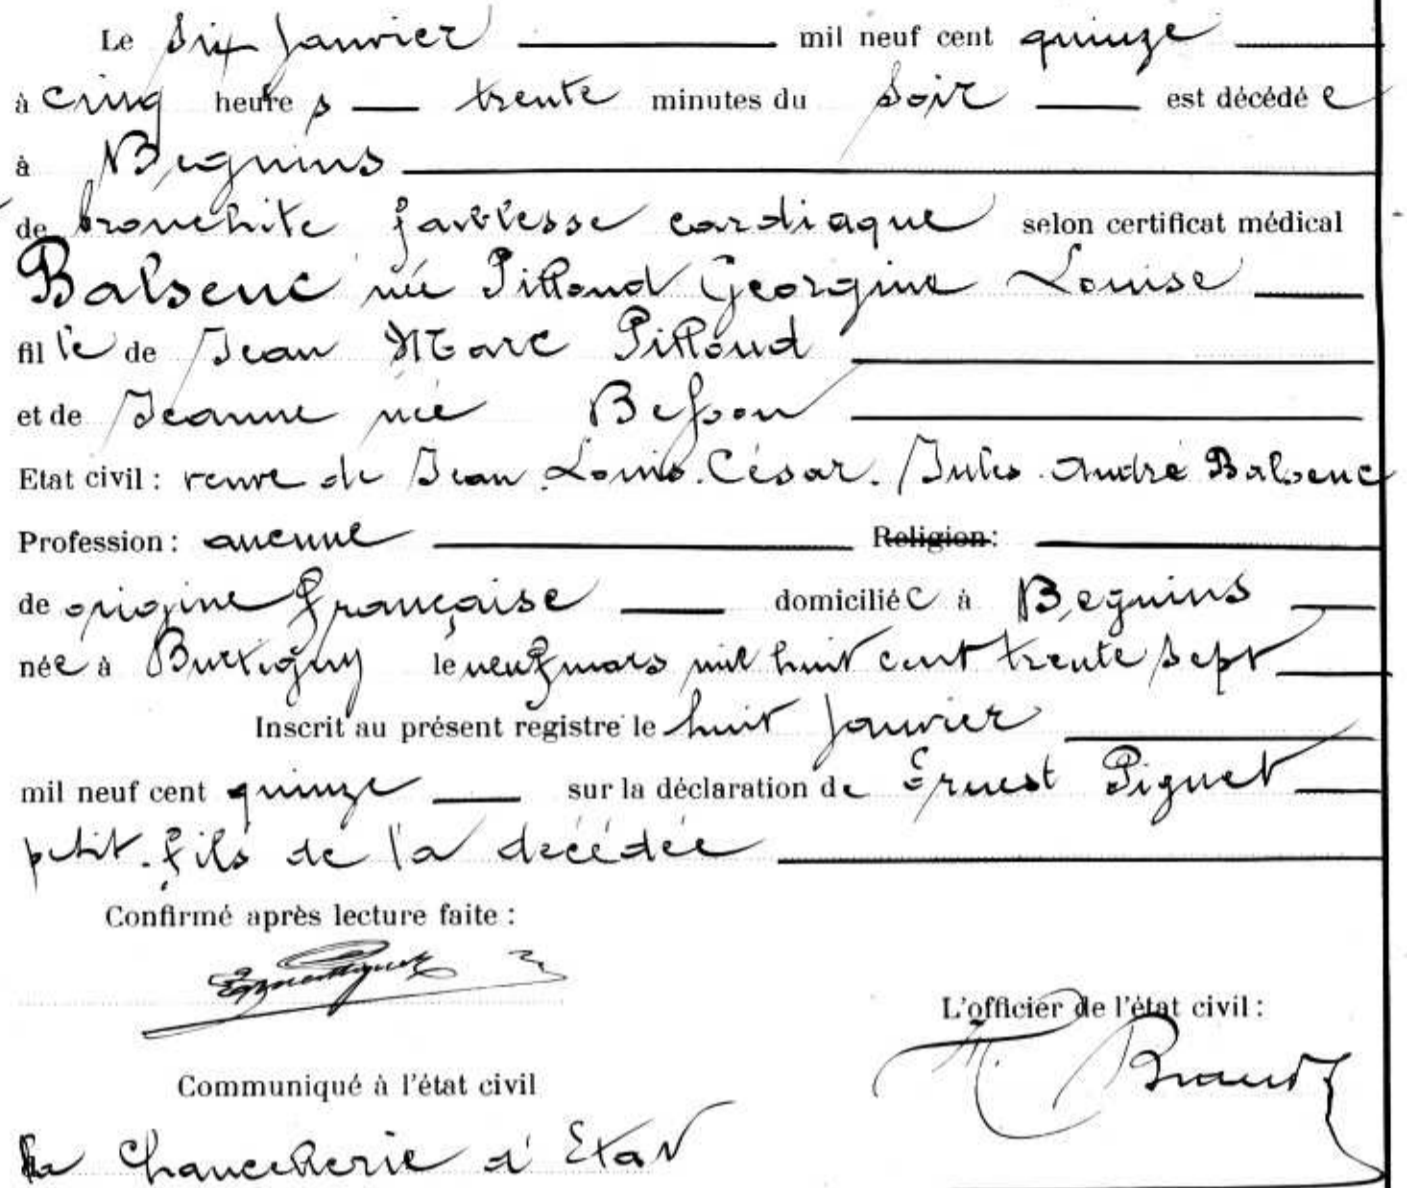 Le six Janvier mil neuf cent quinze
à cinq heures trente minutes du soir est décédée
à Begnins
de bronchite faiblesse cardiaque selon certificat médical
Balsenc née Pilloud Georgine Louise
fille de Jean Marc Pilloud
et de Jeanne née Besson
Etat civil : veuve de Jean Louis César Jules André Balsenc
Profession : aucune Religion :
de origine française domiciliée à Begnins
née à Burtigny le neuf mars mil huit cent trente sept
Inscrit au présent registre le huit Janvier
mil neuf cent quinze sur la déclaration de Ernest Piguet
petit-fils de la décédée
Confirmé après lecture faite :
L'officier de l'état civil :
Communiqué à l'état civil
la Chancellerie d'Etat